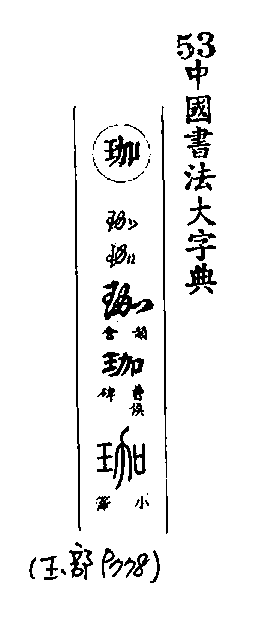 53中國書法大字典
珈
珈
珈
珈
珈
曹侯碑
珈
小篆
(玉部 P778)